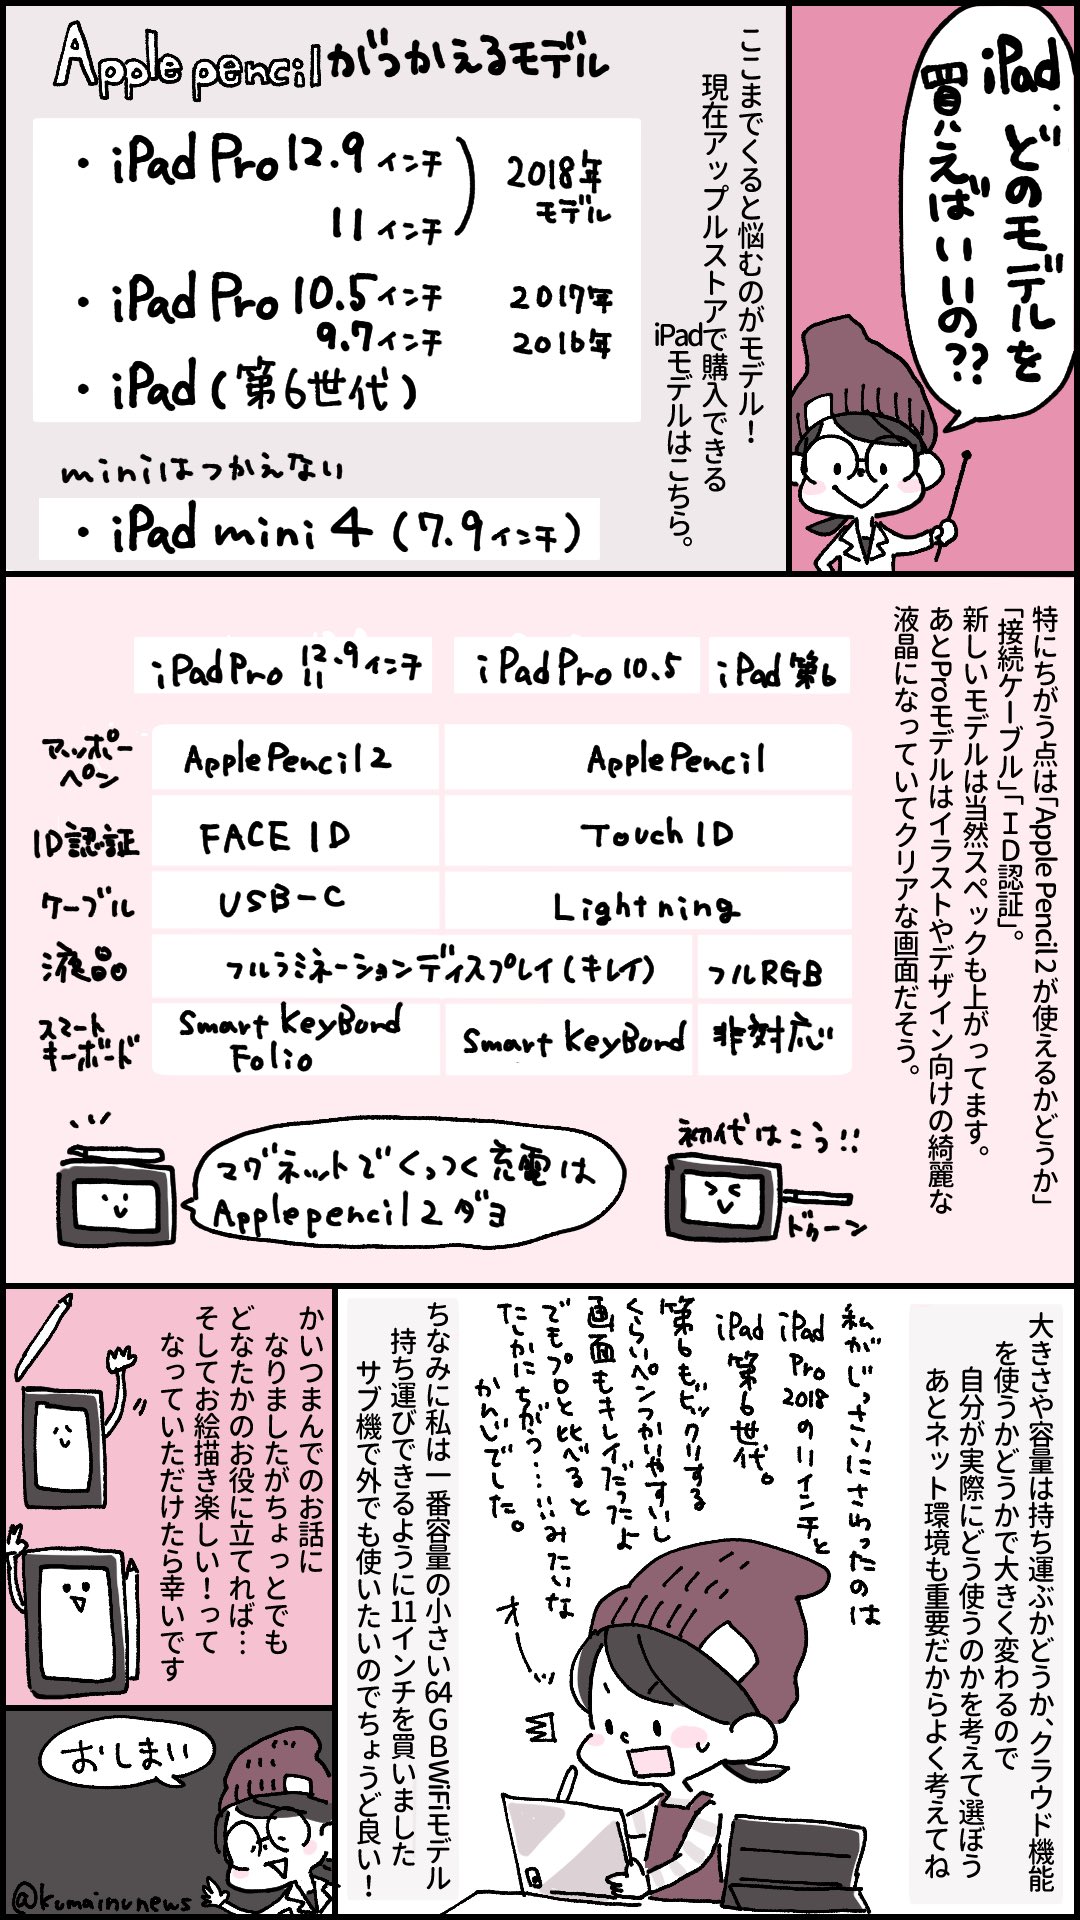 iPad、どのモデルを
買えばいいの??
ここまでくると悩むのがモデル!
現在アップルストアで購入できる
iPadモデルはこちら。
Apple pencilがつかえるモデル
・iPad Pro 12.9インチ
11インチ
2018年
モデル
・iPad Pro 10.5インチ 2017年
9.7インチ 2016年
・iPad(第6世代)
miniはつかえない
・iPad mini 4 (7.9インチ)
特にちがう点は「Apple Pencil 2が使えるかどうか」
「接続ケーブル」「ID認証」。
新しいモデルは当然スペックも上がってます。
あとProモデルはイラストやデザイン向けの綺麗な
液晶になっていてクリアな画面だそう。
iPad Pro 12.9インチ
11
iPad Pro 10.5
iPad第6
アッポー
ペン
Apple Pencil 2
Apple Pencil
ID認証
FACE ID
Touch ID
ケーブル
USB-C
Lightning
液晶
フルラミネーションディスプレイ(キレイ)
フルRGB
スマート
キーボード
Smart KeyBord
Folio
Smart KeyBord
非対応
マグネットでくっつく充電は
Apple pencil 2ダヨ
初代はこう!!
ドゥーン
大きさや容量は持ち運ぶかどうか、クラウド機能
を使うかどうかで大きく変わるので
自分が実際にどう使うのかを考えて選ぼう
あとネット環境も重要だからよく考えてね
私がじっさいにさわったのは
iPad Pro 2018の11インチと
iPad 第6世代。
第6もビックリする
くらいペンつかいやすいし
画面もキレイだったよ
でもプロと比べると
たしかにちがう…いみたいな
かんじでした。
オー
ちなみに私は一番容量の小さい64GBWiFiモデル
持ち運びできるように11インチを買いました
サブ機で外でも使いたいのでちょうど良い!
かいつまんでのお話に
なりましたがちょっとでも
どなたかのお役に立てれば…
そしてお絵描き楽しい!って
なっていただけたら幸いです
おしまい
@kumainunews